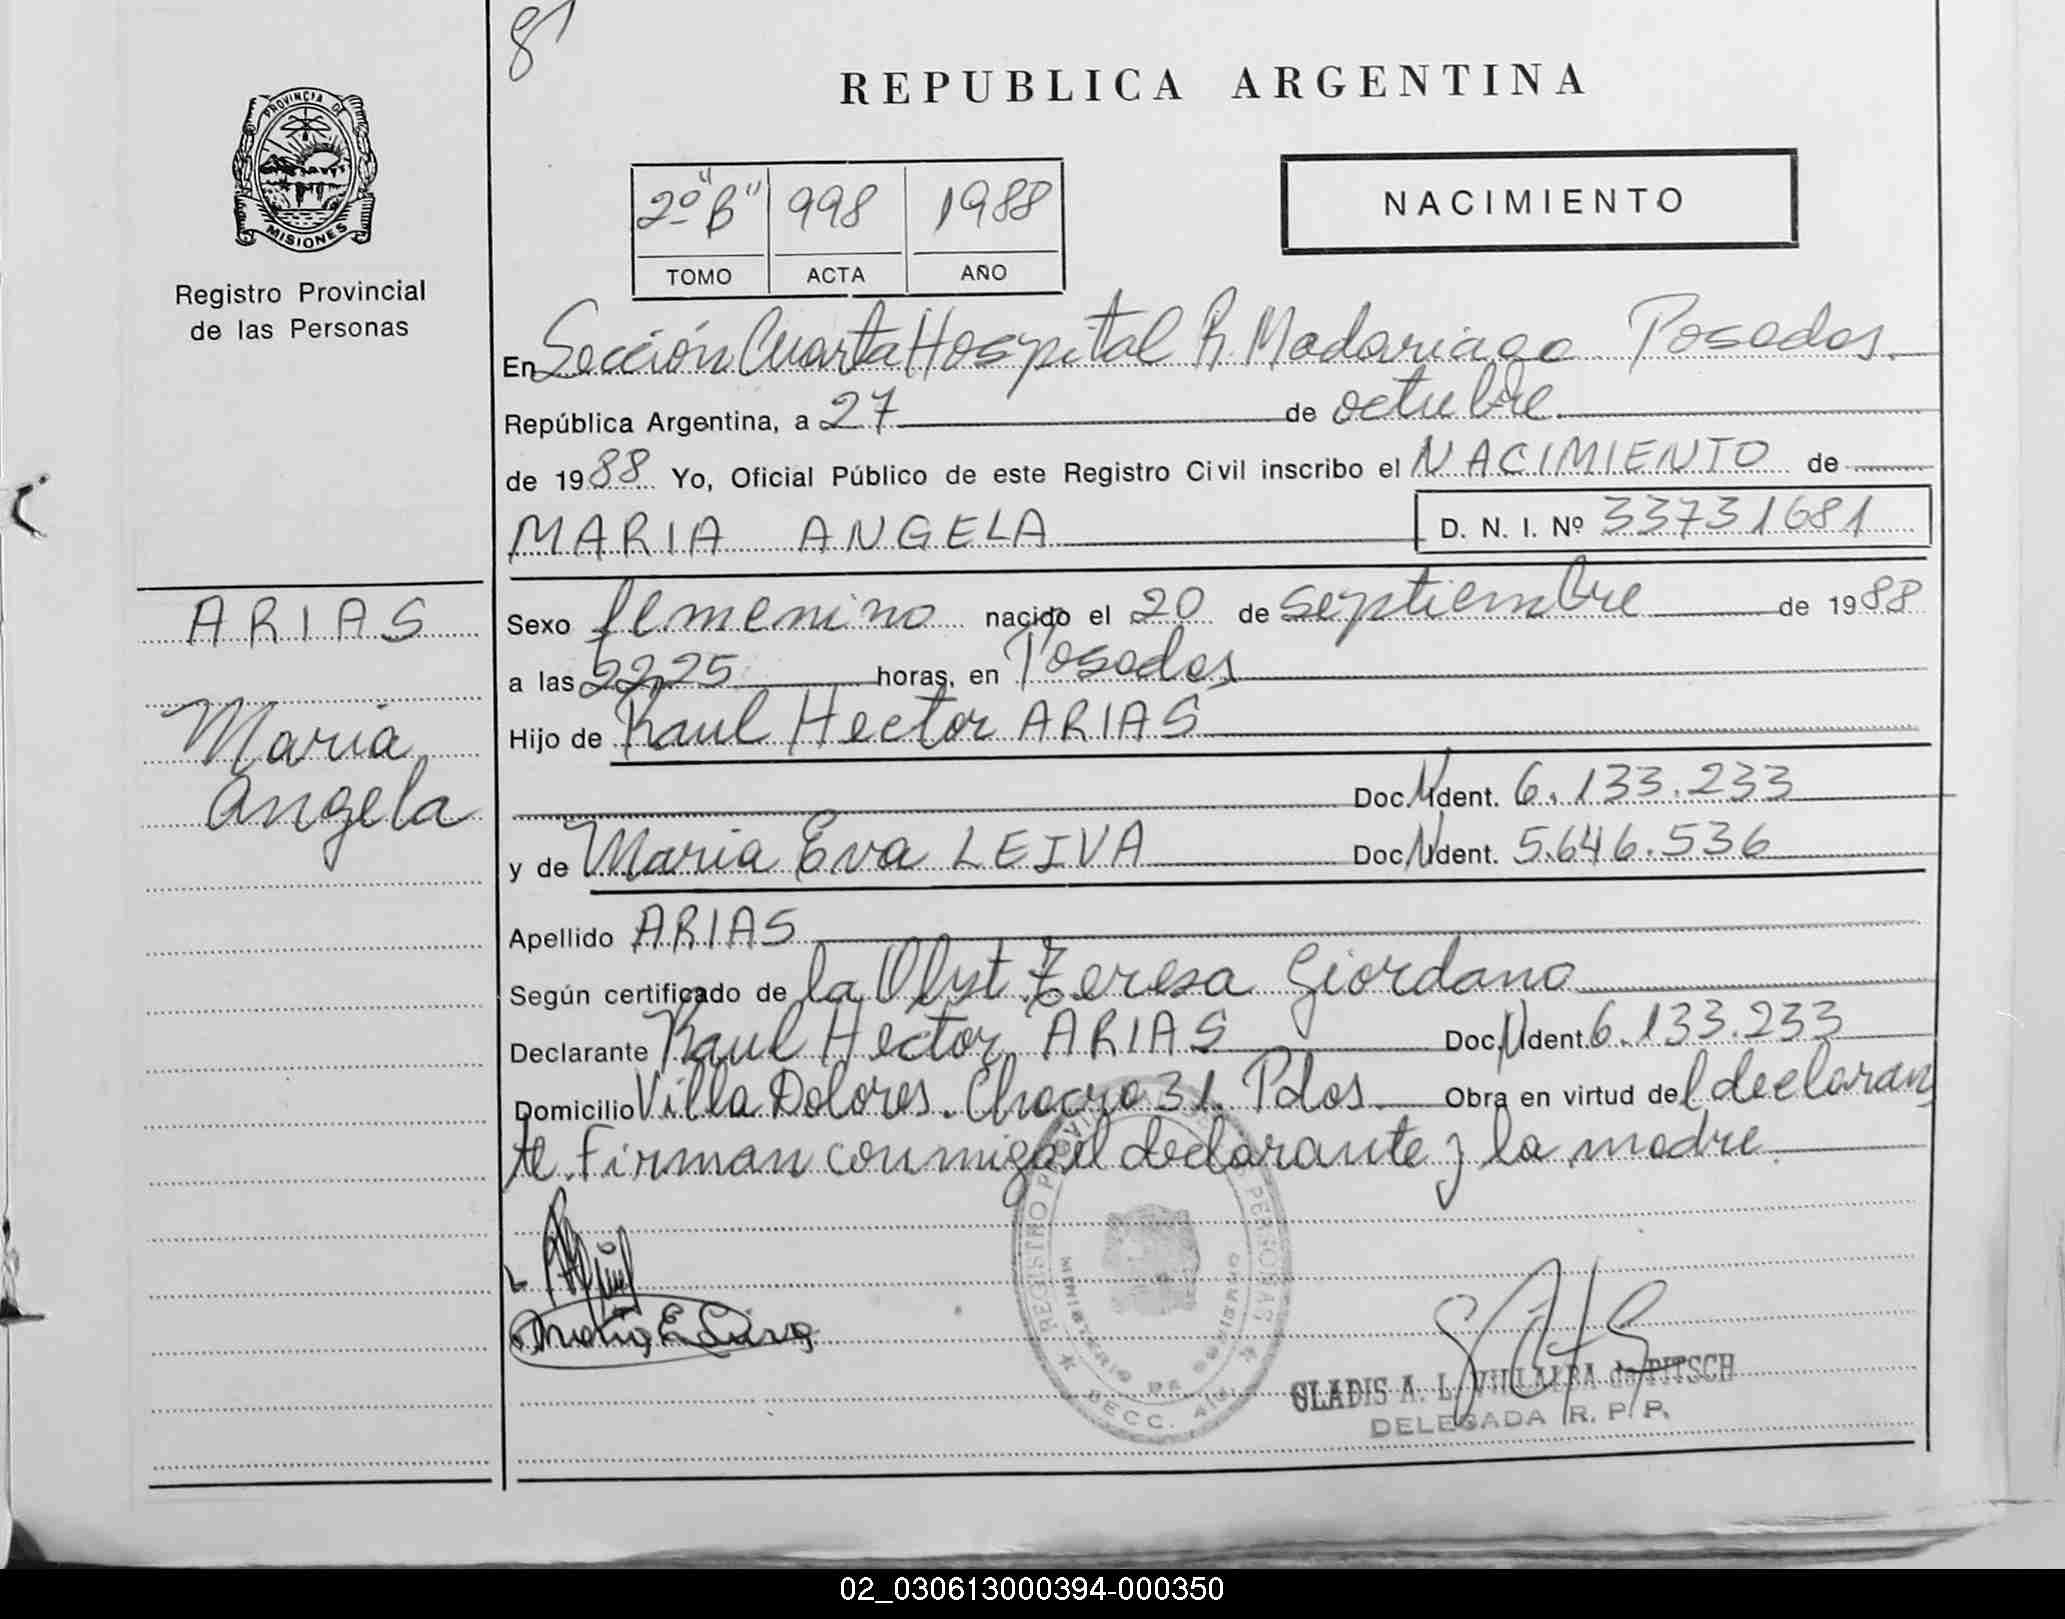 81
REPUBLICA ARGENTINA
PROVINCIA DE
MISIONES
Registro Provincial
de las Personas
2º "B" 998 1988
TOMO ACTA AÑO
NACIMIENTO
En Sección Cuarta Hospital R. Madariaga Posadas.
República Argentina, a 27 de octubre
de 1988 Yo, Oficial Público de este Registro Civil inscribo el NACIMIENTO de
MARIA ANGELA D. N. I. Nº 33731681
ARIAS
Maria
Angela
Sexo femenino nacido el 20 de septiembre de 1988
a las 22,25 horas, en Posadas
Hijo de Raul Hector ARIAS
Doc. Ident. 6.133.233
y de Maria Eva LEIVA Doc. Ident. 5.646.536
Apellido ARIAS
Según certificado de la Obst Teresa Giordano
Declarante Raul Hector ARIAS Doc. Ident. 6.133.233
Domicilio Villa Dolores. Chacra 31. Pdas Obra en virtud del declaran
te. Firman conmigo el declarante y la madre.
REGISTRO PROVINCIAL DE LAS PERSONAS
MINISTERIO DE GOBIERNO
SECC. 4ta
Maria E Leiva
GLADIS A. L. VILLALBA de PITSCH
DELEGADA R. P. P.
02_030613000394-000350